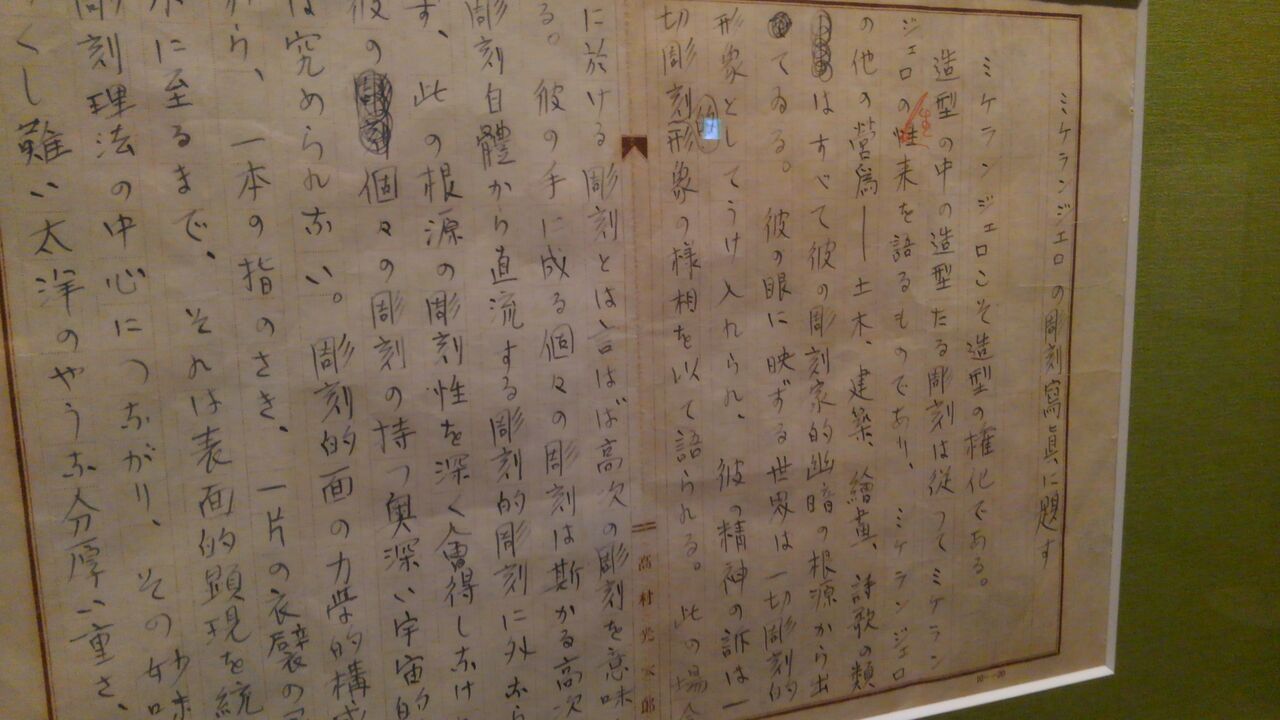 ミケランジエロの彫刻寫眞に題す
ミケランジェロこそ造型の権化である。
造型の中の造型たる彫刻は従つてミケラン
ジェロの性来を語るものであり、ミケランジェロ
生
の他の営為──土木、建築、繪畫、詩歌の類
はすべて彼の彫刻家的幽暗の根源から出
てゐる。彼の眼に映ずる世界は一切彫刻的
形象としてうけ入れられ、彼の精神の訴は一
切彫刻形象の様相を以て語られる。此の場合
的
高村光太郎
10─20
に於ける彫刻とは言はば高次の彫刻を意味
る。彼の手に成る個々の彫刻は斯かる高次
彫刻自體から直流する彫刻的彫刻に外なら
ず、此の根源の彫刻性を深く會得しなけ
彼の個々の彫刻の持つ奥深い宇宙的
は究められない。彫刻的面の力学的構成
から、一本の指のさき、一片の衣襞の
に至るまで、それは表面的顕現を統
彫刻理法の中心につながり、その妙味
くし難い太洋のやうな分厚い重さ、